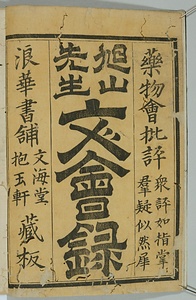 藥物會批評
衆評如指掌
羣疑似然犀
旭山
先生
文會録
文海堂
抱玉軒
浪華書舗
藏板